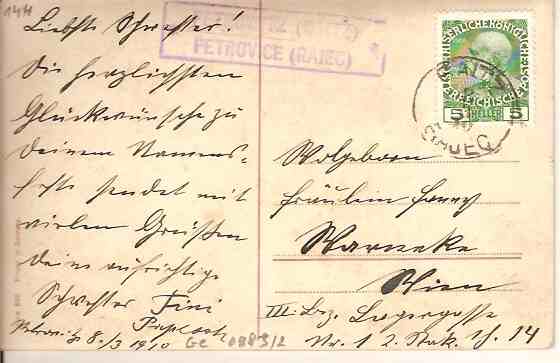 144
Liebste Schwester!
die herzlichsten
Glückwünsche zu
deinem Namens-
feste sendet mit
vielen Grüßen
deine aufrichtige
Schwester Fini
8./3 1910
Gc 0883/2
PETROVICE (RAJEC)
KAISERLICHE KÖNIGLICHE
ÖSTERREICHISCHE
5 HELLER 5
Wolgeboren
Fräulein Fanny
Warneke
Wien
III. Bez. Lagergasse
Nr. 1 2. Stock Th. 14